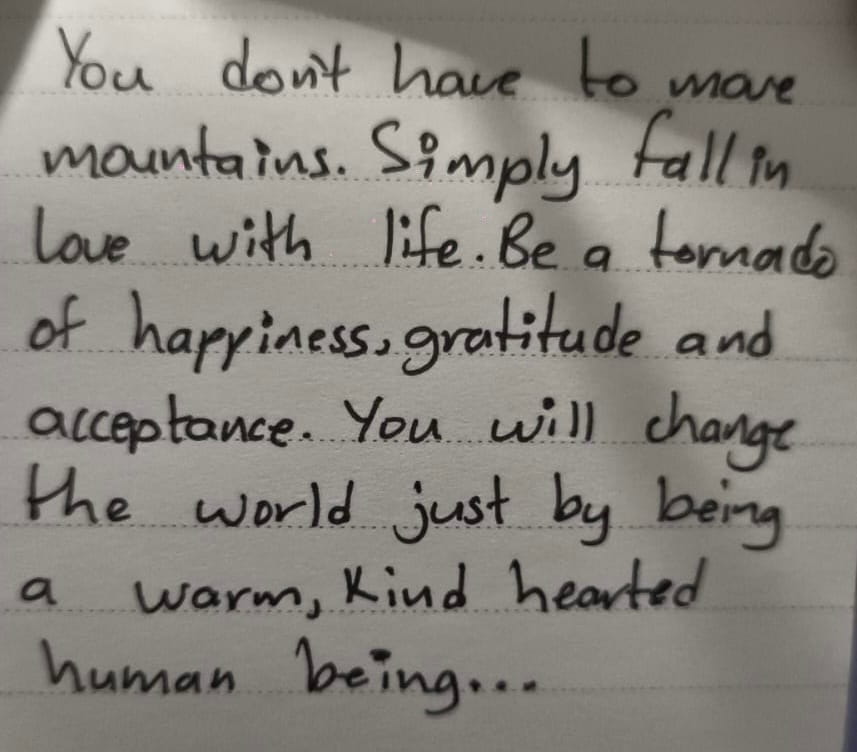 You don't have to move
mountains. Simply fall in
love with life. Be a tornado
of happiness, gratitude and
acceptance. You will change
the world just by being
a warm, kind hearted
human being...